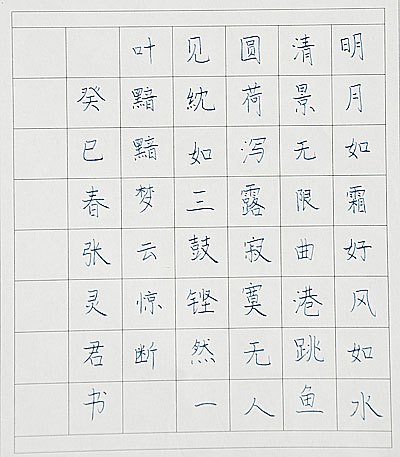 明月如霜好风如水
清景无限曲港跳鱼
圆荷泻露寂寞无人
见紞如三鼓铿然一
叶黯黯梦云惊断
癸巳春张灵君书